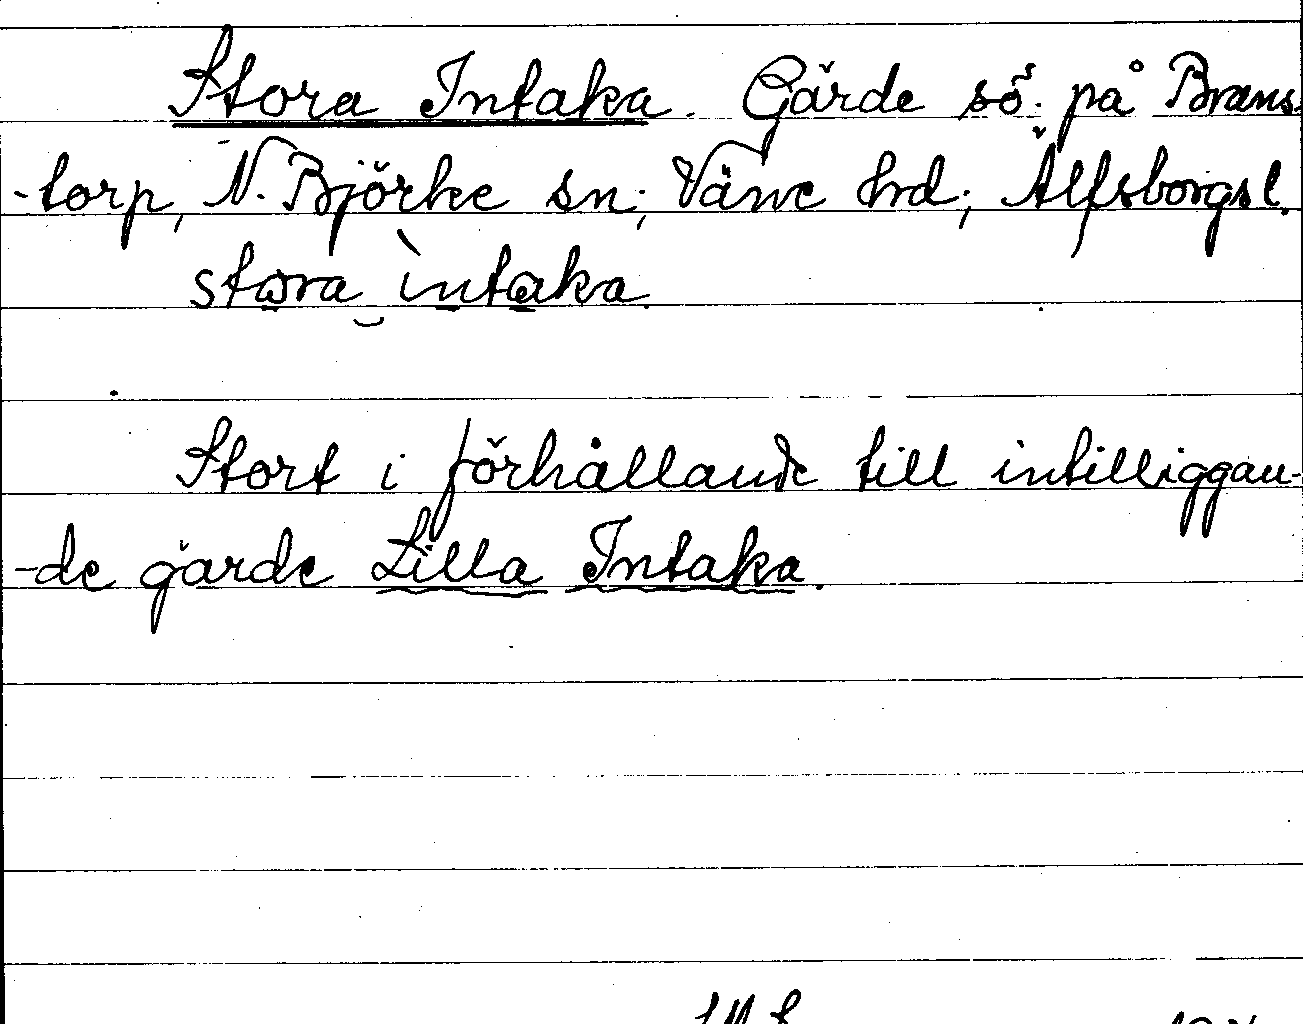 Stora Intaka. Gärde sö. på Brans-
-torp, N. Björke sn; Väne hrd; Älfsborgs l.
stora ìntaka.
Stort i förhållande till intilliggan-
-de gärde Lilla Intaka.